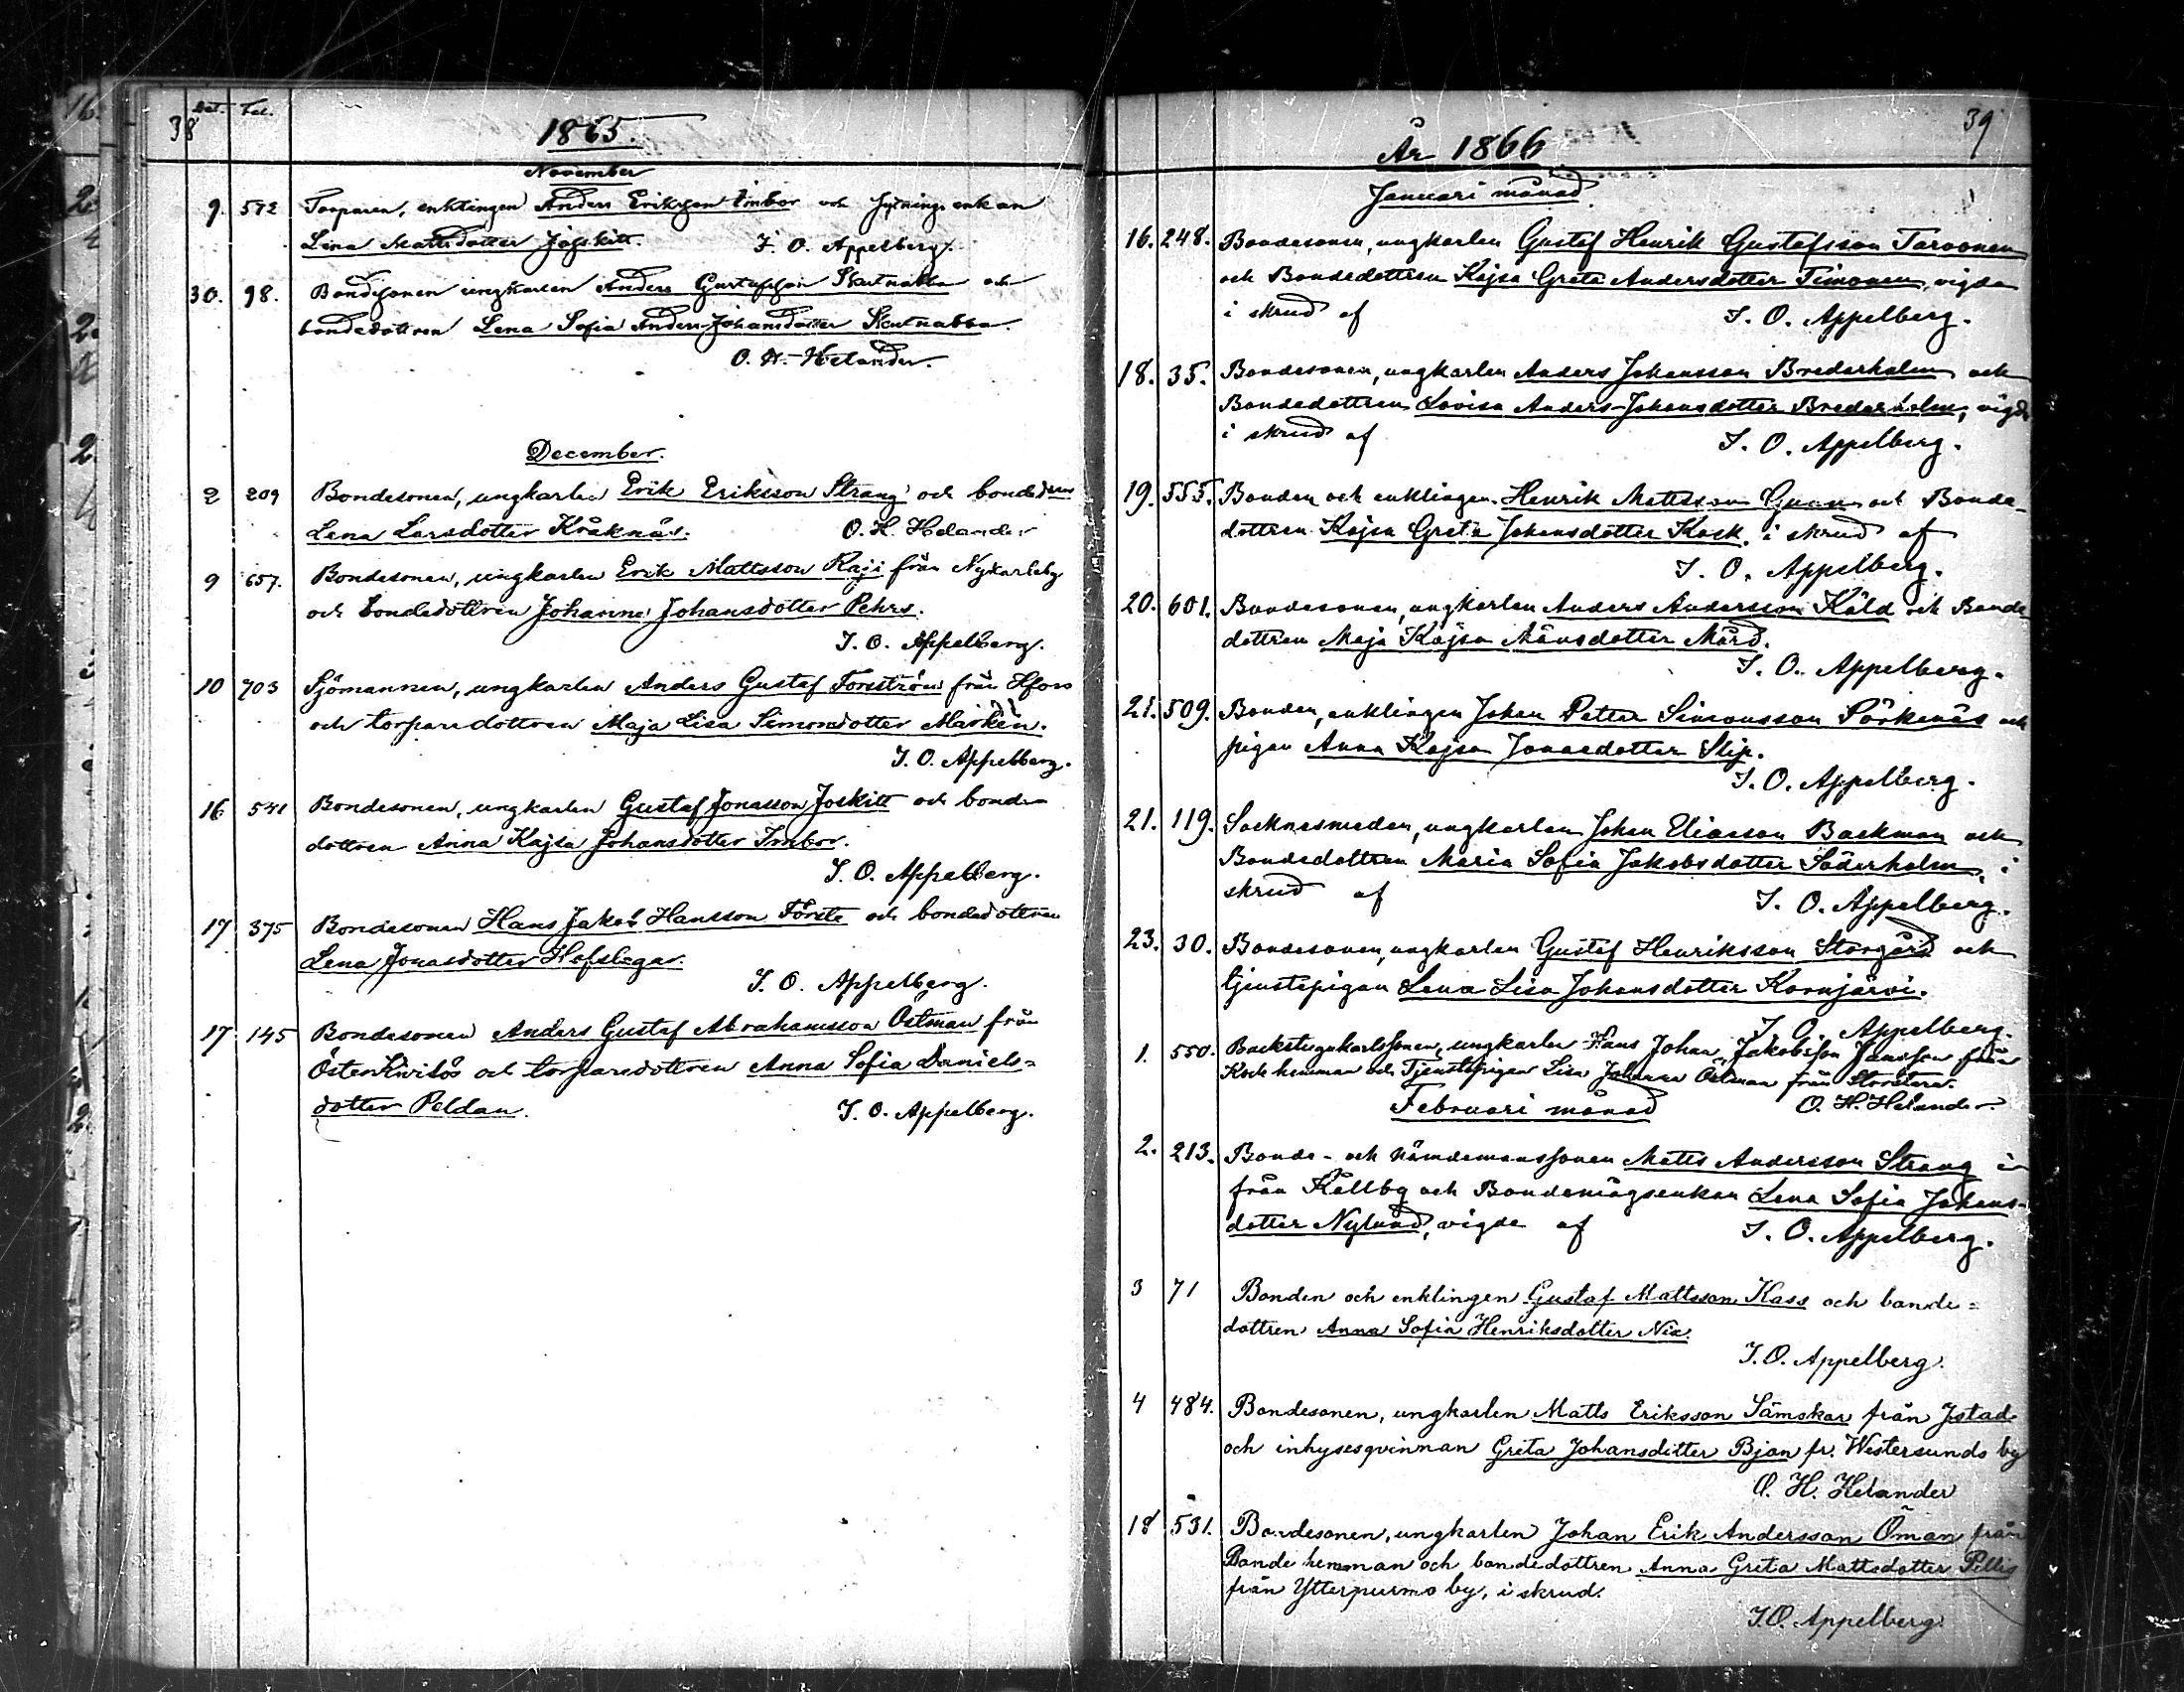 Dat. Fol.
38
1865.
November
9. 572 Torparen, enklingen Anders Eriksson Imbor och hysningsenkan
Lena Mattsdotter Joskitt. I. O. Appelberg.
30. 98. Bondesonen ungkarlen Anders Gustafsson Skutnabba och
bondedottren Lena Sofia Anders-Johansdotter Skutnabba.
O. H. Helander.
December.
2 209 Bondesonen, ungkarlen Erik Eriksson Strang och
Lena Larsdotter Kråknäs. O. H. Helander
9 657. Bondesonen, ungkarlen Erik Mattsson Raji från Nykarleby
och bondedottren Johanna Johansdotter Pehrs.
I. O. Appelberg.
10 703 Sjömannen, ungkarlen Anders Gustaf Forström från Hfors
och torparedottren Maja Lisa Simonsdotter Markén.
I. O. Appelberg.
16 541 Bondesonen, ungkarlen Gustaf Jonasson Joskitt och bonde-
dottren Anna Kajsa Johansdotter Imbor.
I. O. Appelberg.
17 375 Bondesonen Hans Jakob Hansson Förste och bondedottren
Lena Jonasdotter Hofslagar.
I. O. Appelberg.
17 145 Bondesonen Anders Gustaf Abrahamsson Östman från
Österkivilös och torparedottren Anna Sofia Daniels=
dotter Peldan. I. O. Appelberg.
39
År 1866
Januari månad.
16. 248. Bondesonen, ungkarlen Gustaf Henrik Gustafsson Tarvonen
och Bondedottren Kajsa Greta Andersdotter Timonen, vigda
i skrud af I. O. Appelberg.
18. 35. Bondesonen, ungkarlen Anders Johansson Brederholm och
Bondedottren Lovisa Anders-Johansdotter Brederholm, vigde
i skrud af I. O. Appelberg.
19. 555. Bonden och enklingen Henrik Mattsson Gunn och Bonde-
dottren Kajsa Greta Johansdotter Kock, i skrud af
I. O. Appelberg.
20. 601. Bondesonen, ungkarlen Anders Andersson Käld och Bonde
dottren Maja Kajsa Månsdotter Mård.
I. O. Appelberg.
21. 509. Bonden, enklingen Johan Petter Simonsson Pörkenäs och
pigan Anna Kajsa Jonasdotter Slip.
I. O. Appelberg.
21. 119. Socknesmeden, ungkarlen Johan Eliasson Backman och
Bondedottren Maria Sofia Jakobsdotter Söderholm, i
skrud af I. O. Appelberg.
23. 30. Bondesonen, ungkarlen Gustaf Henriksson Storgård och
tjenstepigan Lena Lisa Johansdotter Kornjärvi.
I. O. Appelberg.
1. 550. Backstugukarlssonen, ungkarlen Hans Johan Jakobsson Jansson från
Kock hemman och Tjenstepigan Lisa Johanna Östman från Storstara.
Februari månad O. H. Helander.
2. 213. Bonde- och nämdemanssonen Matts Andersson Strang
från Källby och Bondemågsenkan Lena Sofia Johans-
dotter Nylund, vigde af I. O. Appelberg.
3 71 Bonden och enklingen Gustaf Mattsson Kass och bonde=
dottren Anna Sofia Henriksdotter Nix.
I. O. Appelberg.
4 484. Bondesonen, ungkarlen Matts Eriksson Sämskar från Ystad
och inhysesqvinnan Greta Johansdotter Bjon fr. Westersunds by
O. H. Helander
18 531. Bondesonen, ungkarlen Johan Erik Andersson Öman från
Bonde hemman och bondedottren Anna Greta Mattsdotter Pellis
från Ytterpurmo by, i skrud.
I. O. Appelberg.